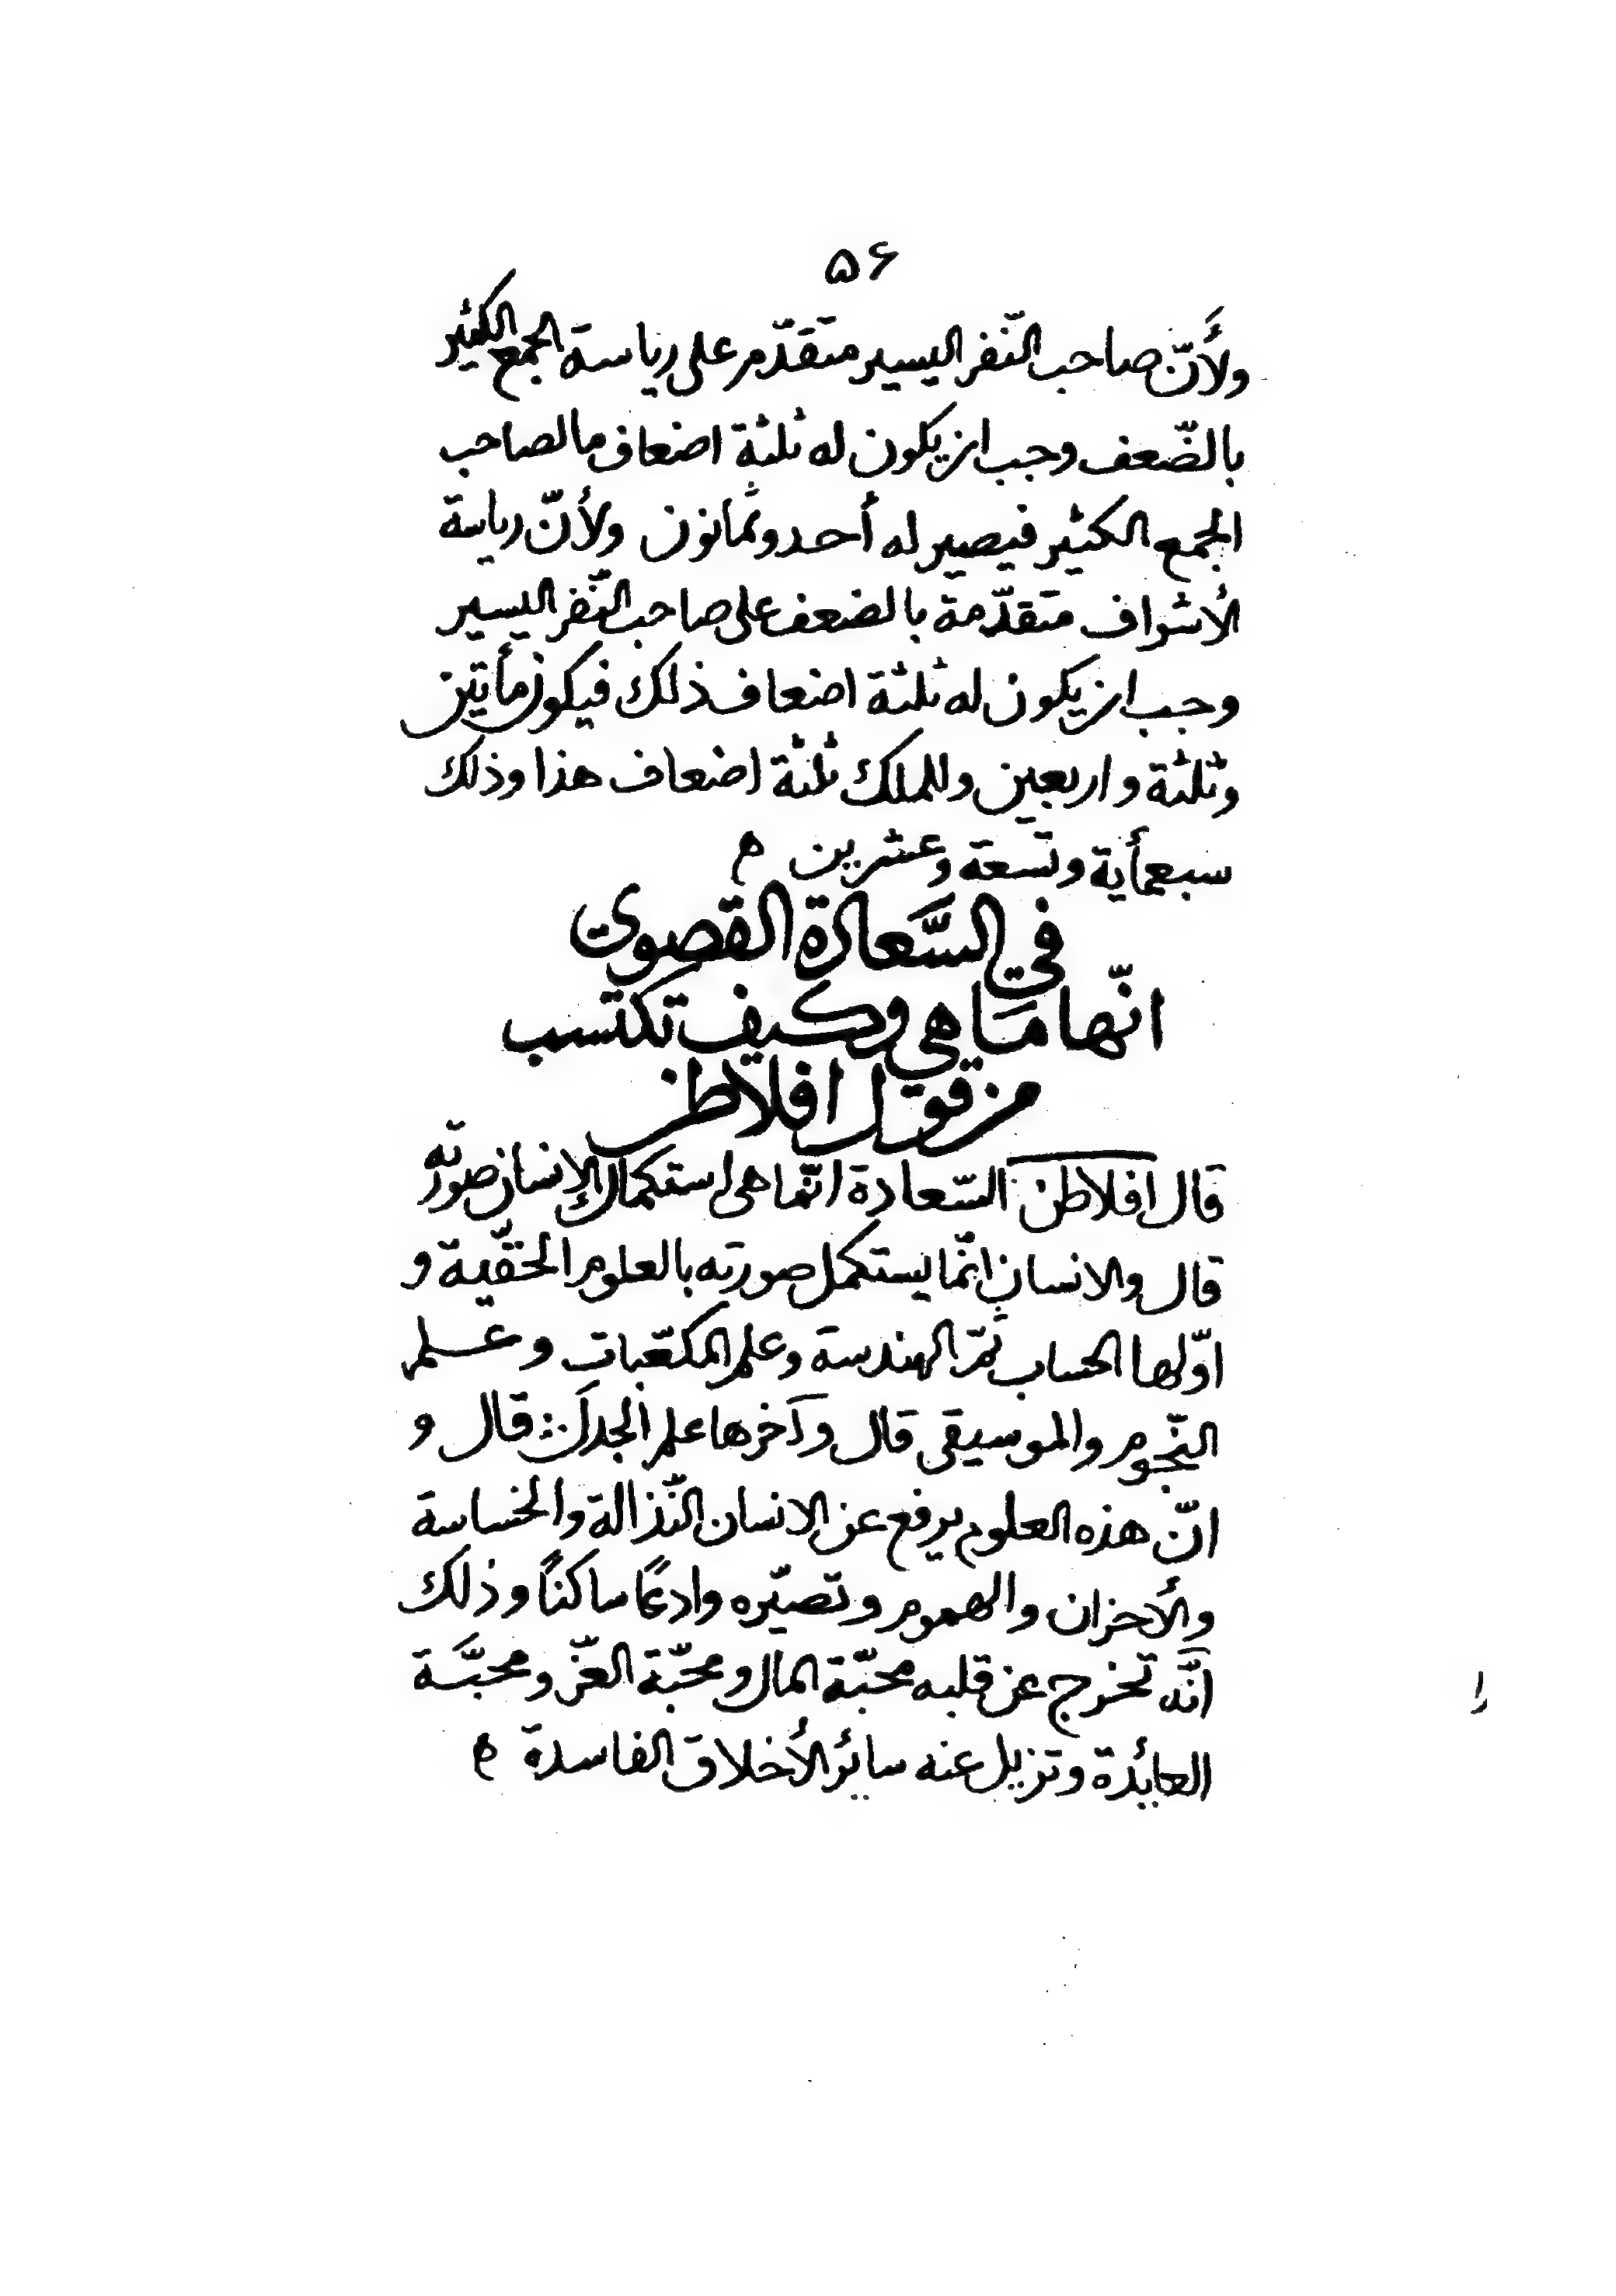 ۵۶
ولأنّ صاحب النّفر اليسير متقدّم على رياسة الجمع الكثير
بالضّعف وجب ان يكون له ثلثة اضعاف ما لصاحب
الجمع الكثير فيصير له أحد وثمانون ولأنّ رياسة
الأشراف متقدّمة بالضعف على صاحب النّفر اليسير
وجب ان يكون له ثلثة اضعاف ذلك فيكون مأيتين
وثلثة واربعين وللملك ثلثة اضعاف هذا وذلك
سبعمأية وتسعة وعشرين ه
في السَّعادة القصوى
انّها مَا هي وكيف تكتسب
من قول افلاطن
قال افلاطن السّعادة انّما هى استكمال الإنسان صورته
قال والانسان انّما يستكمل صورته بالعلوم الحقّية و
اوّلها الحساب ثمّ الهندسة وعلم المكعّبات وعلم
النّجوم والموسيقى قال وآخرها علم الجدل قال و
انّ هذه العلوم يرفع عن الانسان النّذالة والخساسة
والأحزان والهموم وتصيّره وادعًا ساكنًا وذلك
أنّه تخرج عن قلبه محبّة المال ومحبّة العزّ ومحبَّة
العائدة وتزيل عنه سائر الأخلاق الفاسدة ه